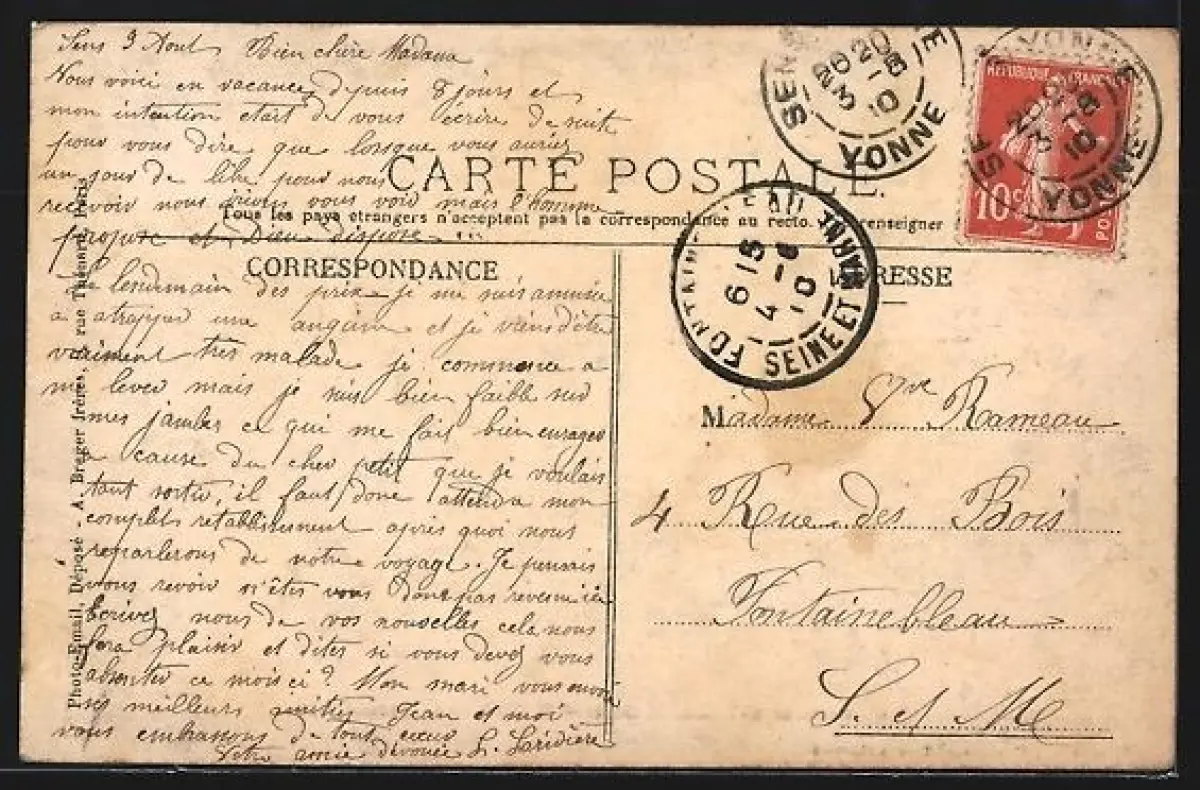 Sens 3 Aout Bien chère Madame
Nous voici en vacances depuis 8 jours et
mon intention etait de vous ecrire de suite
pour vous dire que lorsque vous auriez
un jour de libre pour nous
recevoir nous irions vous voir mais l'homme
propose et Dieu dispose
CARTE POSTALE
Tous les pays étrangers n'acceptent pas la correspondance au recto. renseigner
CORRESPONDANCE
Le lendemain des prix je me suis amusée
a attrapper une angine et je viens d'être
vraiment très malade je commence a
me lever mais je suis bien faible sur
mes jambes ce qui me fait bien enrager
a cause du cher petit que je voulais
tant sortir, il faut donc attendre mon
complet rétablissement après quoi nous
reparlerons de notre voyage. Je pensais
vous revoir n'êtes vous donc pas revenu ici
écrivez nous de vos nouvelles cela nous
fera plaisir et dites si vous devez vous
absenter ce mois ci? Mon mari vous envoie
ses meilleurs amitiés Jean et moi
vous embrassons de tout coeur
Votre amie dévouée L. Laridière
Photo-Email, Déposé - A. Breger frères, rue Thénard, Paris
SENS YONNE
20 20
3 -8
10
SENS YONNE
3 -8
10
REPUBLIQUE FRANÇAISE
10c
POSTES
FONTAINEBLEAU SEINE ET MARNE
6 15
4 -8
10
ADRESSE
Madame Vve Rameau
4 Rue des Bois
Fontainebleau
S. et M.